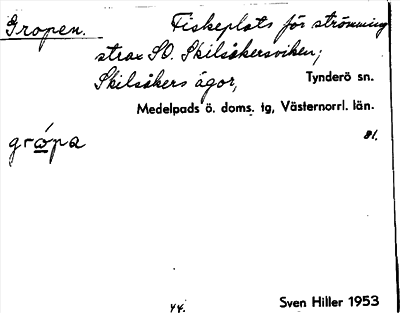 Gropen. Fiskeplats för strömming
strax SO. Skilsåkersviken;
Skilsåkers ägor, Tynderö sn.
Medelpads ö. doms. tg, Västernorrl. län.
gró̲pa 81.
44. Sven Hiller 1953